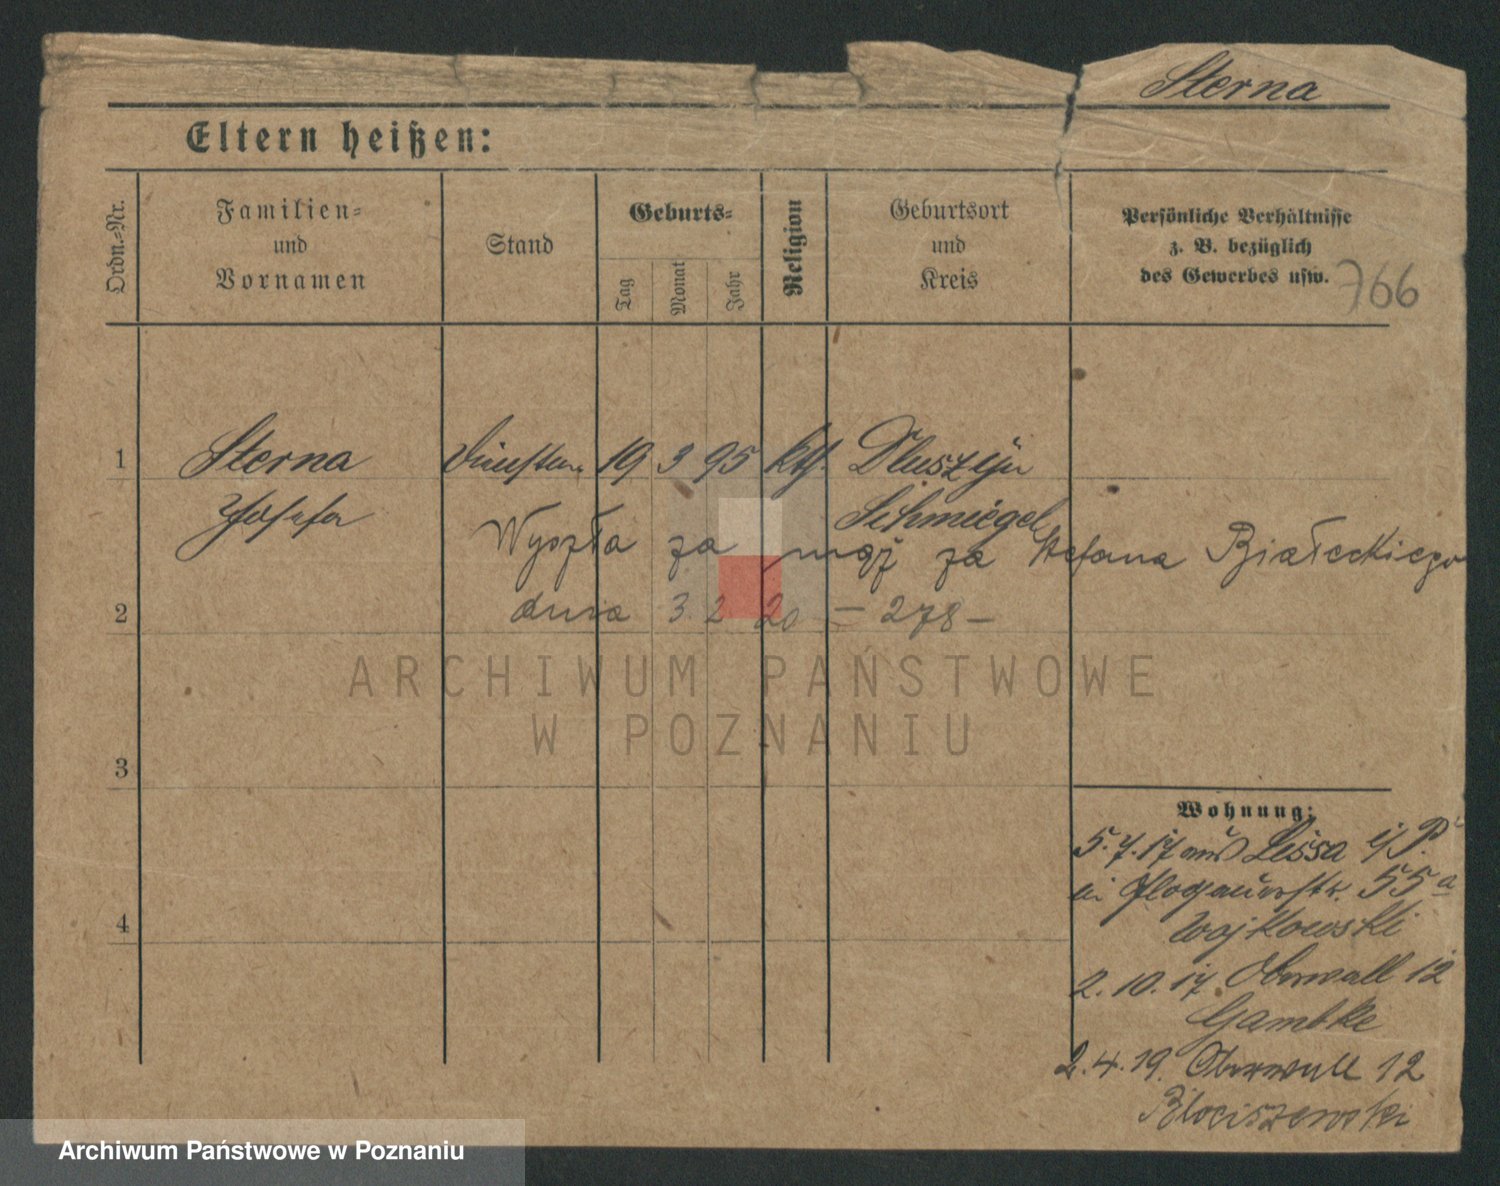 Sterna
Eltern heißen:
Ordn.-Nr.
Familien-
und
Vornamen
Stand
Geburts-
Tag
Monat
Jahr
Religion
Geburtsort
und
Kreis
Persönliche Verhältnisse
z. B. bezüglich
des Gewerbes usw.
766
1 Sterna 19 3 95 kth. Dluszyn
Josefa Schmiegel
Wyszła za mąż za Stefana Białeckiego
2 dnia 3. 2 20 — 278 —
ARCHIWUM PAŃSTWOWE
W POZNANIU
3
Wohnung:
5. 7. 17 aus Lissa i/P.
bei Glogauerstr. 55a
Wojkowski
4
2. 10. 17. Oberwall 12
Gambke
2. 4. 19. Oberwall 12
Błociszewski
Archiwum Państwowe w Poznaniu